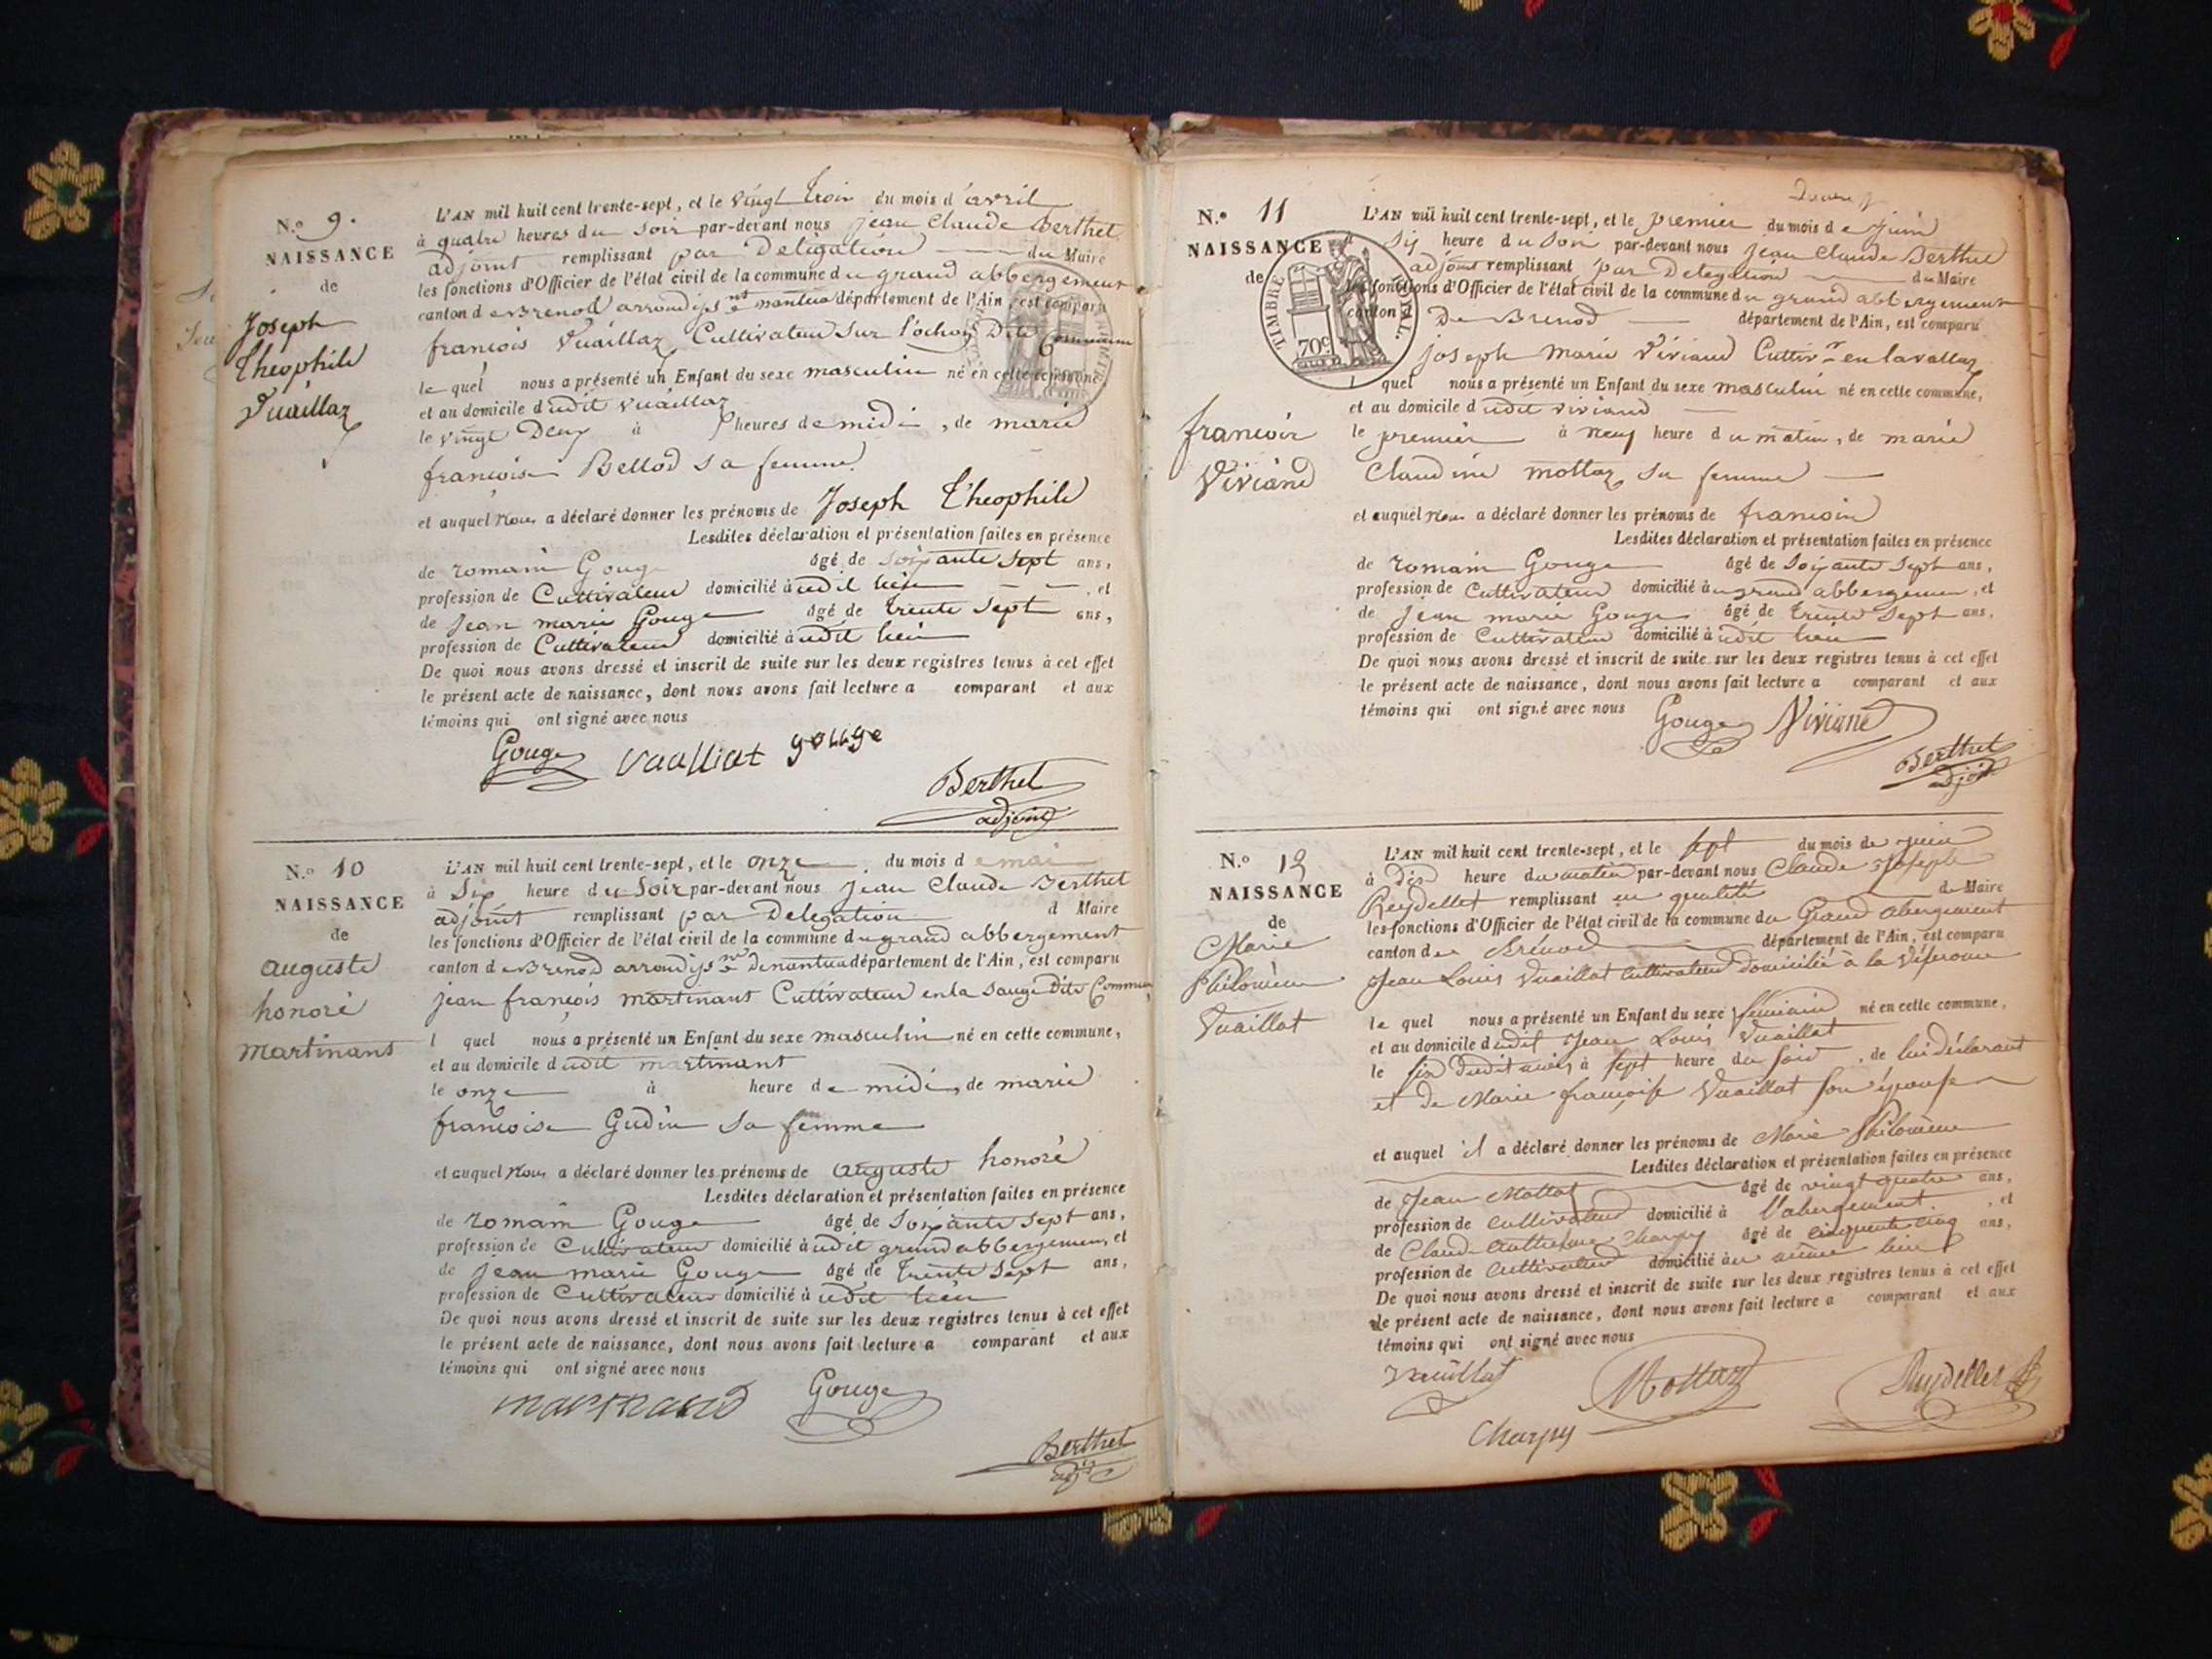 N.º 9.
NAISSANCE
de
Joseph
Theophile
Vuaillaz
L'AN mil huit cent trente-sept, et le vingt trois du mois d'avril
à quatre heures du soir par-devant nous jean Claude Berthet
adjoint remplissant par Délégation du Maire
les fonctions d'Officier de l'état civil de la commune du grand abbergement
canton de Brenod arrondiss.nt nantua département de l'Ain, est comparu
françois Vuaillaz Cultivateur sur Dite Commune
le quel nous a présenté un Enfant du sexe masculin né en cette commune,
et au domicile dudit vuaillaz
le vingt Deux à heures de midi, de marie
françoise Bellod sa femme
et auquel nous a déclaré donner les prénoms de Joseph Theophile
Lesdites déclaration et présentation faites en présence
de romain Gouge âgé de soixante sept ans,
profession de Cultivateur domicilié à udit lieu, et
de jean marie Gouge âgé de trente sept ans,
profession de Cultivateur domicilié à udit lieu
De quoi nous avons dressé et inscrit de suite sur les deux registres tenus à cet effet
le présent acte de naissance, dont nous avons fait lecture a comparant et aux
témoins qui ont signé avec nous
Gouge vualliat gouge
Berthet
adjoint
N.º 10
NAISSANCE
de
auguste
honoré
martinant
L'AN mil huit cent trente-sept, et le onze du mois de mai
à Six heure du Soir par-devant nous jean Claude Berthet
adjoint remplissant par Delegation d Maire
les fonctions d'Officier de l'état civil de la commune du grand abbergement
canton de Brenod arrondiss.nt de nantua département de l'Ain, est comparu
jean françois martinant Cultivateur en la sauge Dite Commune
l quel nous a présenté un Enfant du sexe masculin né en cette commune,
et au domicile dudit martinant
le onze à heure de midi, de marie
françoise Gudin sa femme
et auquel nous a déclaré donner les prénoms de auguste honoré
Lesdites déclaration et présentation faites en présence
de romain Gouge âgé de soixante sept ans,
profession de Cultivateur domicilié à udit grand abbergement, et
de jean marie Gouge âgé de trente sept ans,
profession de Cultivateur domicilié à udit lieu
De quoi nous avons dressé et inscrit de suite sur les deux registres tenus à cet effet
le présent acte de naissance, dont nous avons fait lecture a comparant et aux
témoins qui ont signé avec nous
Gouge
Berthet
N.º 11
NAISSANCE
de
TIMBRE ROYAL.
70c
françois
Viviand
L'AN mil huit cent trente-sept, et le premier du mois de juin
à six heure du soir par-devant nous jean Claude Berthet
adjoint remplissant par Delegation du Maire
les fonctions d'Officier de l'état civil de la commune du grand abbergement
canton De Brenod département de l'Ain, est comparu
joseph marie Viviand Cultiv.r en lavallaz
l quel nous a présenté un Enfant du sexe masculin né en cette commune,
et au domicile dudit viviand
le premier à neuf heure du matin, de marie
Claudine mottaz sa femme
et auquel nous a déclaré donner les prénoms de françois
Lesdites déclaration et présentation faites en présence
de romain Gouge âgé de soixante sept ans,
profession de Cultivateur domicilié à u grand abbergemen, et
de jean marie Gouge âgé de trente sept ans,
profession de Cultivateur domicilié à udit lieu
De quoi nous avons dressé et inscrit de suite sur les deux registres tenus à cet effet
le présent acte de naissance, dont nous avons fait lecture a comparant et aux
témoins qui ont signé avec nous
Gouge Viviand
Berthet
adjoit
N.º 12
NAISSANCE
de
Marie
Philomène
Vuaillat
L'AN mil huit cent trente-sept, et le sept du mois de juin
à dix heure du matin par-devant nous Claude Joseph
Reydellet remplissant en qualité de Maire
les fonctions d'Officier de l'état civil de la commune du Grand abergement
canton de Brénod département de l'Ain, est comparu
Jean Louis Vuaillat cultivateur domicilié à la
le quel nous a présenté un Enfant du sexe féminin né en cette commune,
et au domicile dudit Jean Louis Vuaillat
le six dudit mois à sept heure du soir, de lui déclarant
et de Marie françoise Vuaillat son épouse
et auquel il a déclaré donner les prénoms de Marie Philomène
Lesdites déclaration et présentation faites en présence
de Jean Mottat âgé de vingt quatre ans,
profession de cultivateur domicilié à l'abergement, et
de Claude Anthelme Charpy âgé de cinquante cinq ans,
profession de cultivateur domicilié à u même lieu
De quoi nous avons dressé et inscrit de suite sur les deux registres tenus à cet effet
le présent acte de naissance, dont nous avons fait lecture a comparant et aux
témoins qui ont signé avec nous
Vuaillat Mottaz Reydellet
Charpy